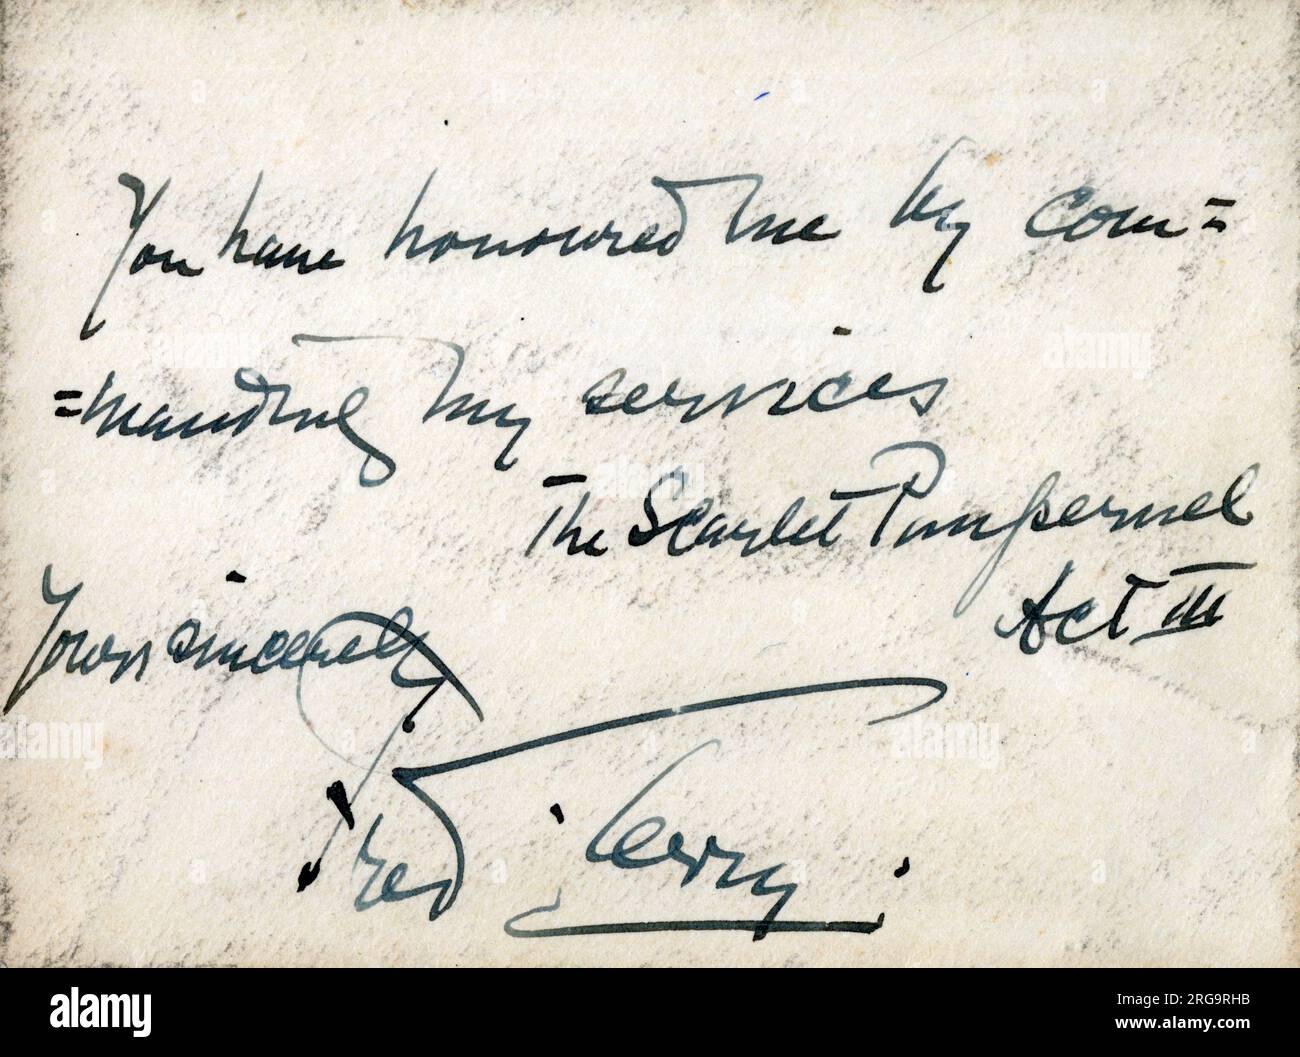 You have honoured me by com=
=manding my services
The Scarlet Pimpernel
Act III
Yours sincerely
Fred Terry.
alamy
Image ID: 2RG9RHB
www.alamy.com